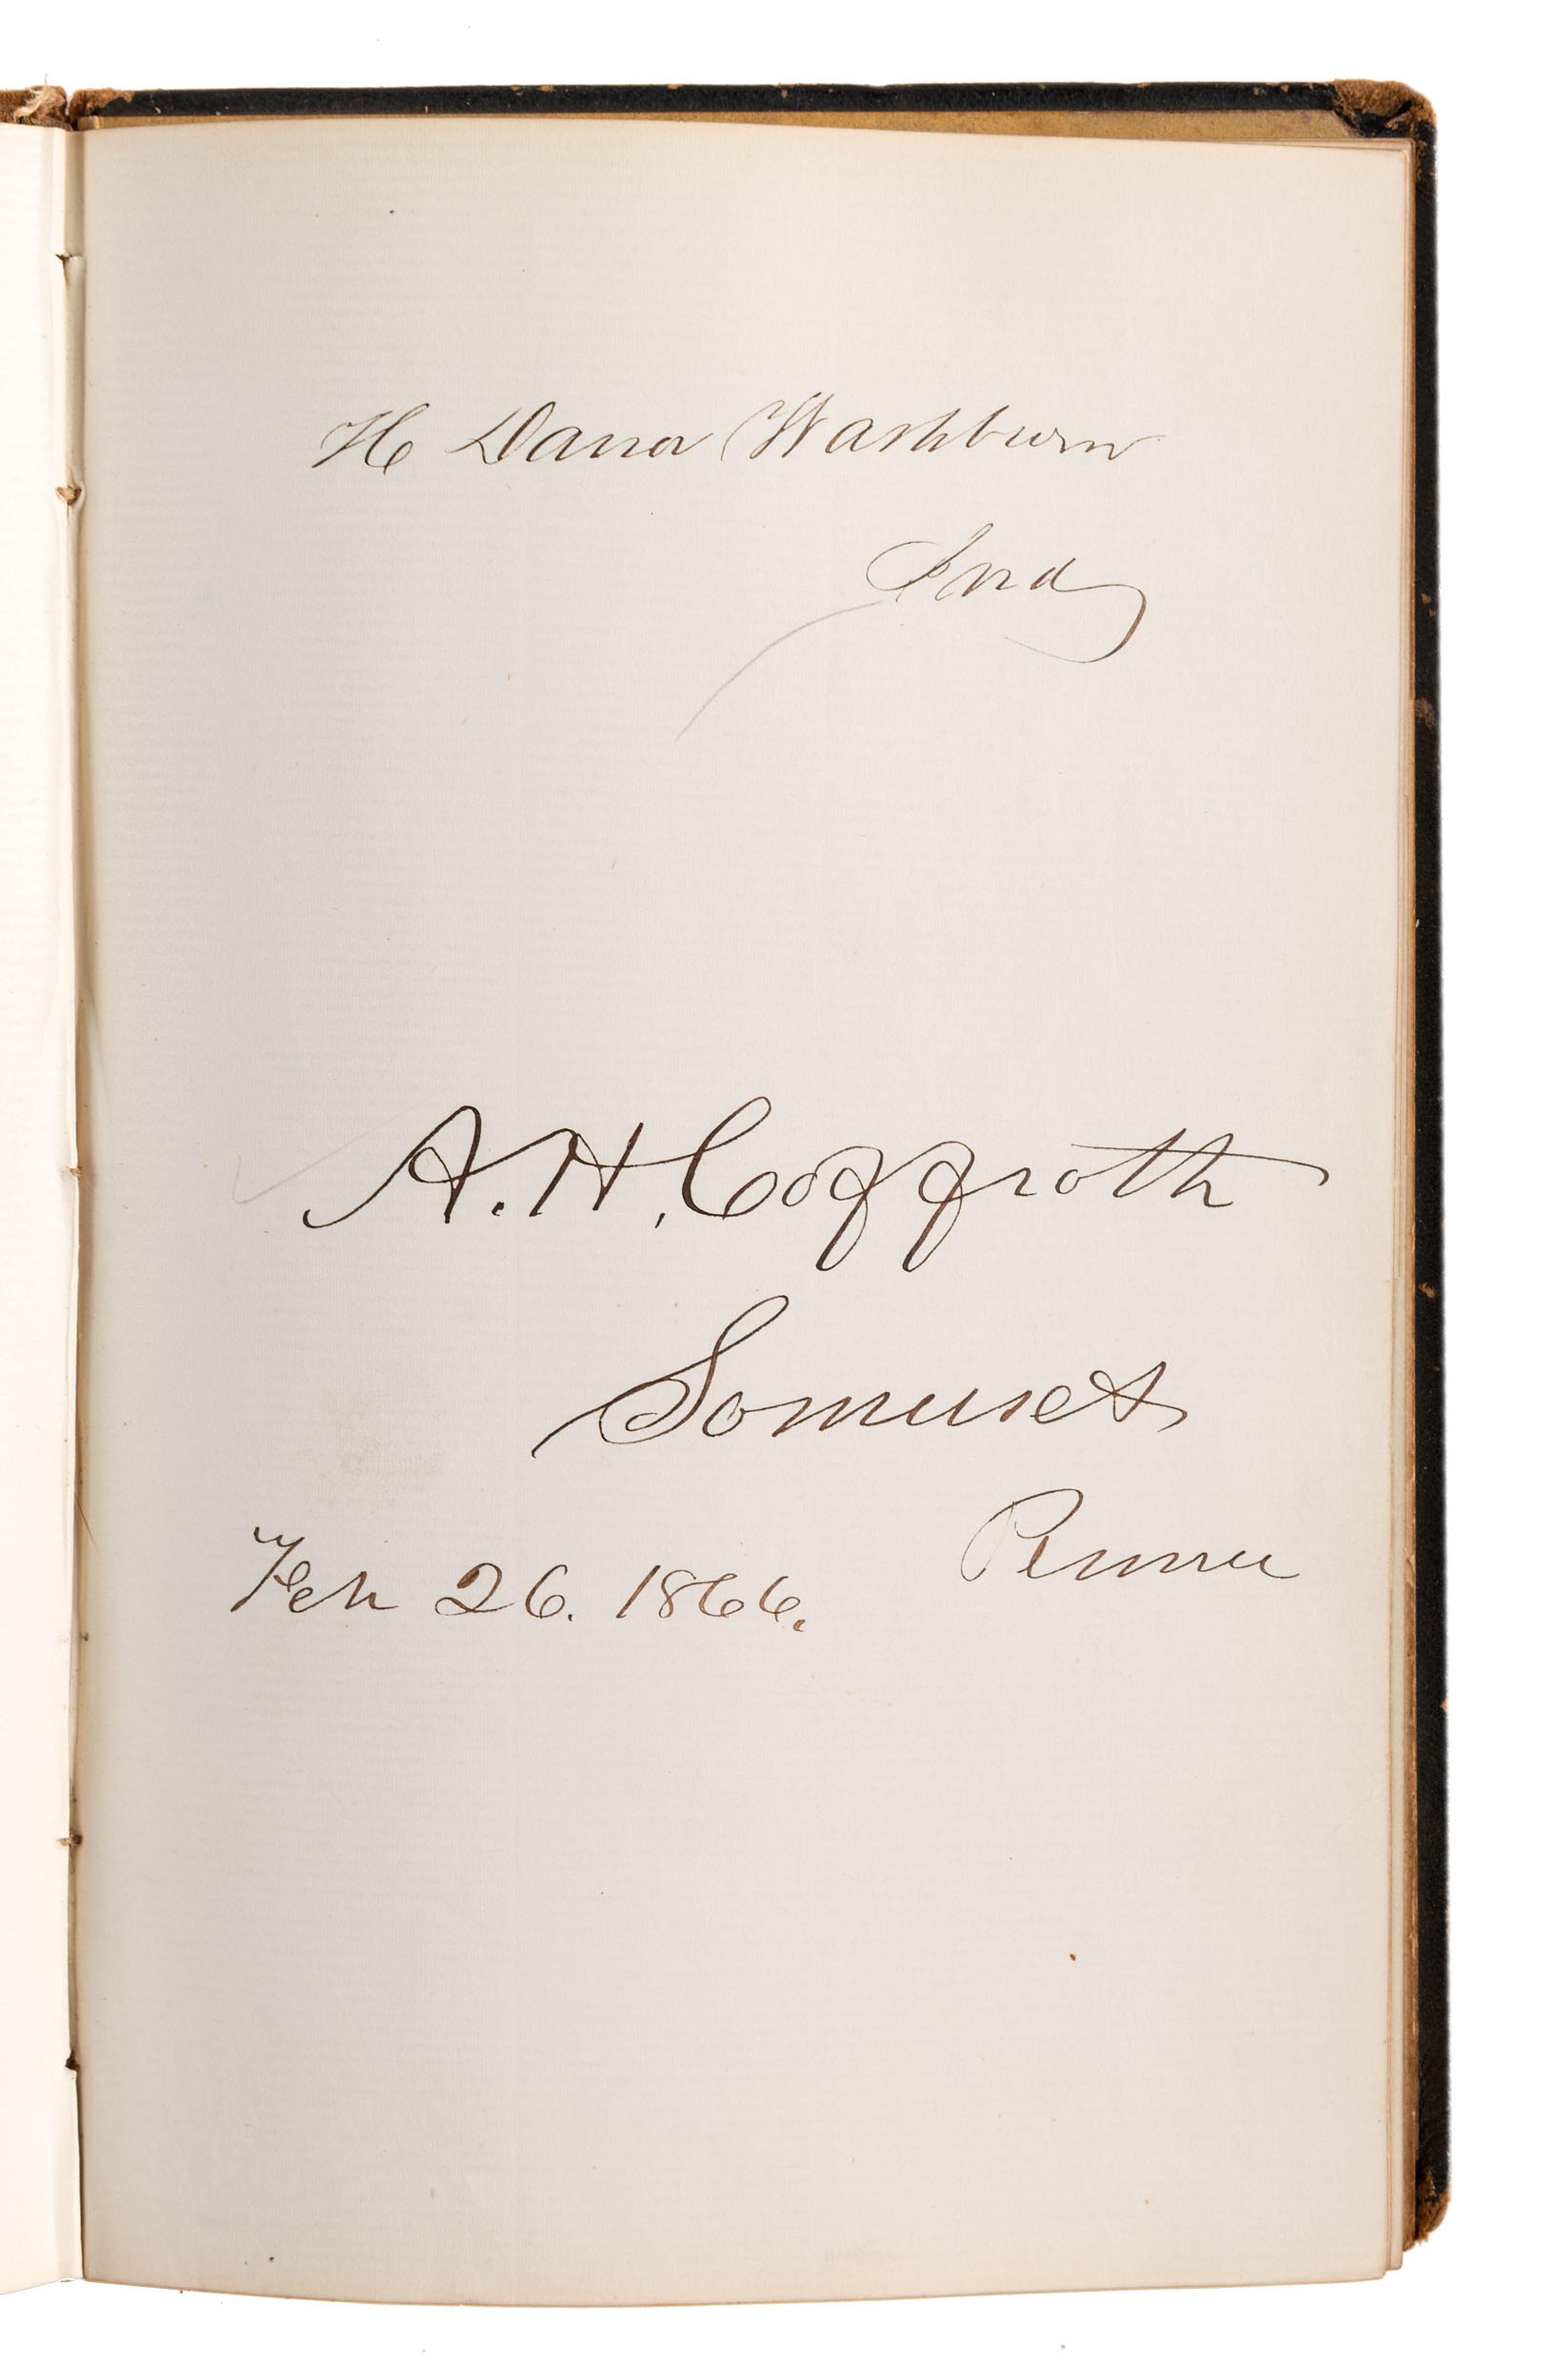 H Dana Washburn
Ind
A. H. Coffroth
Somerset
Penna
Feb 26. 1866.